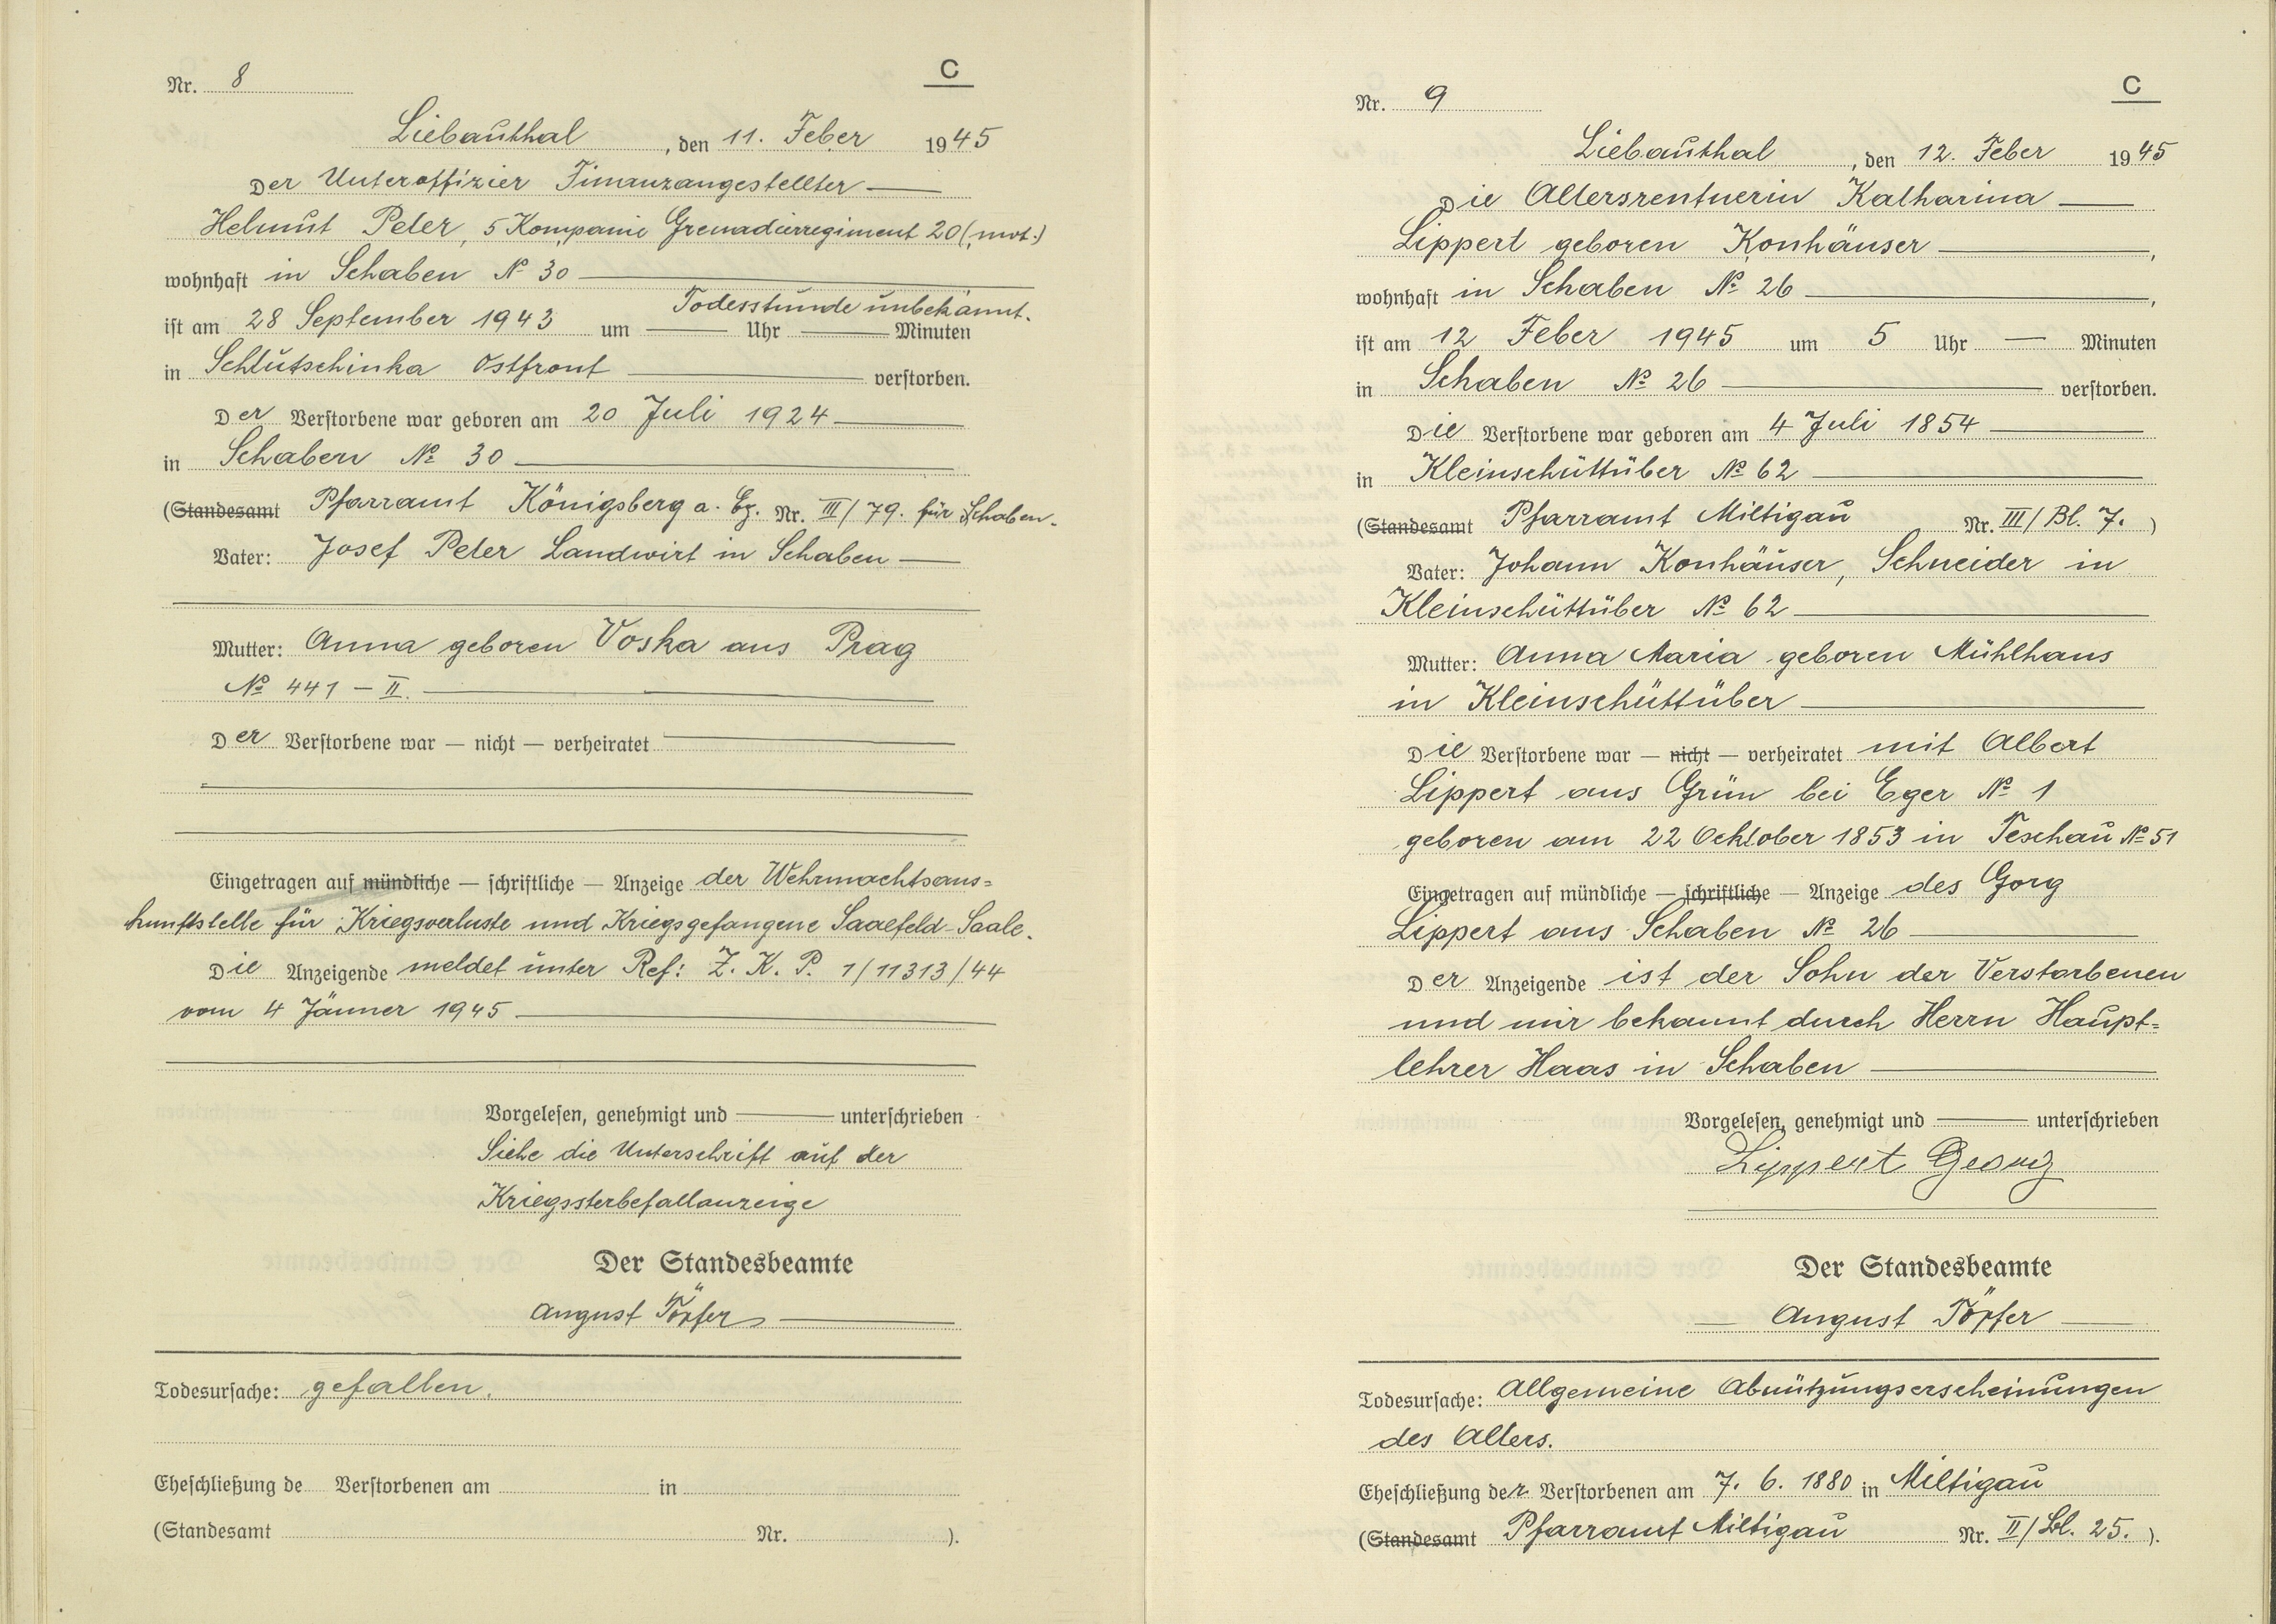 Nr. 8
C
Liebauthal, den 11. Feber 1945
Der Unteroffizier Finanzangestellter
Helmut Peter, 5 Kompanie Grenadierregiment 20 (mot.)
wohnhaft in Schaben № 30
Todesstunde unbekannt.
ist am 28 September 1943 um — Uhr — Minuten
in Schlutschinka Ostfront verstorben.
Der Verstorbene war geboren am 20 Juli 1924
in Schaben № 30
(Standesamt Pfarramt Königsberg a. Eg. Nr. III/79. für Schaben.
Vater: Josef Peter Landwirt in Schaben
Mutter: Anna geboren Voska aus Prag
№ 441 – II.
Der Verstorbene war — nicht — verheiratet
Eingetragen auf mündliche — schriftliche — Anzeige der Wehrmachtsaus=
kunftstelle für Kriegsverluste und Kriegsgefangene Saalfeld-Saale.
Die Anzeigende meldet unter Ref: Z. K. P. 1/11313/44
vom 4 Jänner 1945
Vorgelesen, genehmigt und — unterschrieben
Siehe die Unterschrift auf der
Kriegssterbefallanzeige
Der Standesbeamte
August Töpfer
Todesursache: gefallen.
Eheschließung de Verstorbenen am in
(Standesamt Nr. ).
Nr. 9
C
Liebauthal, den 12. Feber 1945
Die Altersrentnerin Katharina
Lippert geboren Konhäuser,
wohnhaft in Schaben № 26,
ist am 12 Feber 1945 um 5 Uhr — Minuten
in Schaben № 26 verstorben.
Die Verstorbene war geboren am 4 Juli 1854
in Kleinschüttüber № 62
(Standesamt Pfarramt Miltigau Nr. III/Bl. 7. )
Vater: Johann Konhäuser, Schneider in
Kleinschüttüber № 62
Mutter: Anna Maria geboren Mühlhans
in Kleinschüttüber
Die Verstorbene war — nicht — verheiratet mit Albert
Lippert aus Grün bei Eger № 1
geboren am 22 Ocktober 1853 in Teschau № 51
Eingetragen auf mündliche — schriftliche — Anzeige des Gorg
Lippert aus Schaben № 26
Der Anzeigende ist der Sohn der Verstorbenen
und mir bekannt durch Herrn Haupt=
lehrer Haas in Schaben
Vorgelesen, genehmigt und — unterschrieben
Lippert Georg
Der Standesbeamte
August Töpfer
Todesursache: Allgemeine Abnützungserscheinungen
des Alters.
Eheschließung der Verstorbenen am 7. 6. 1880 in Miltigau
(Standesamt Pfarramt Miltigau Nr. II/Bl. 25. ).